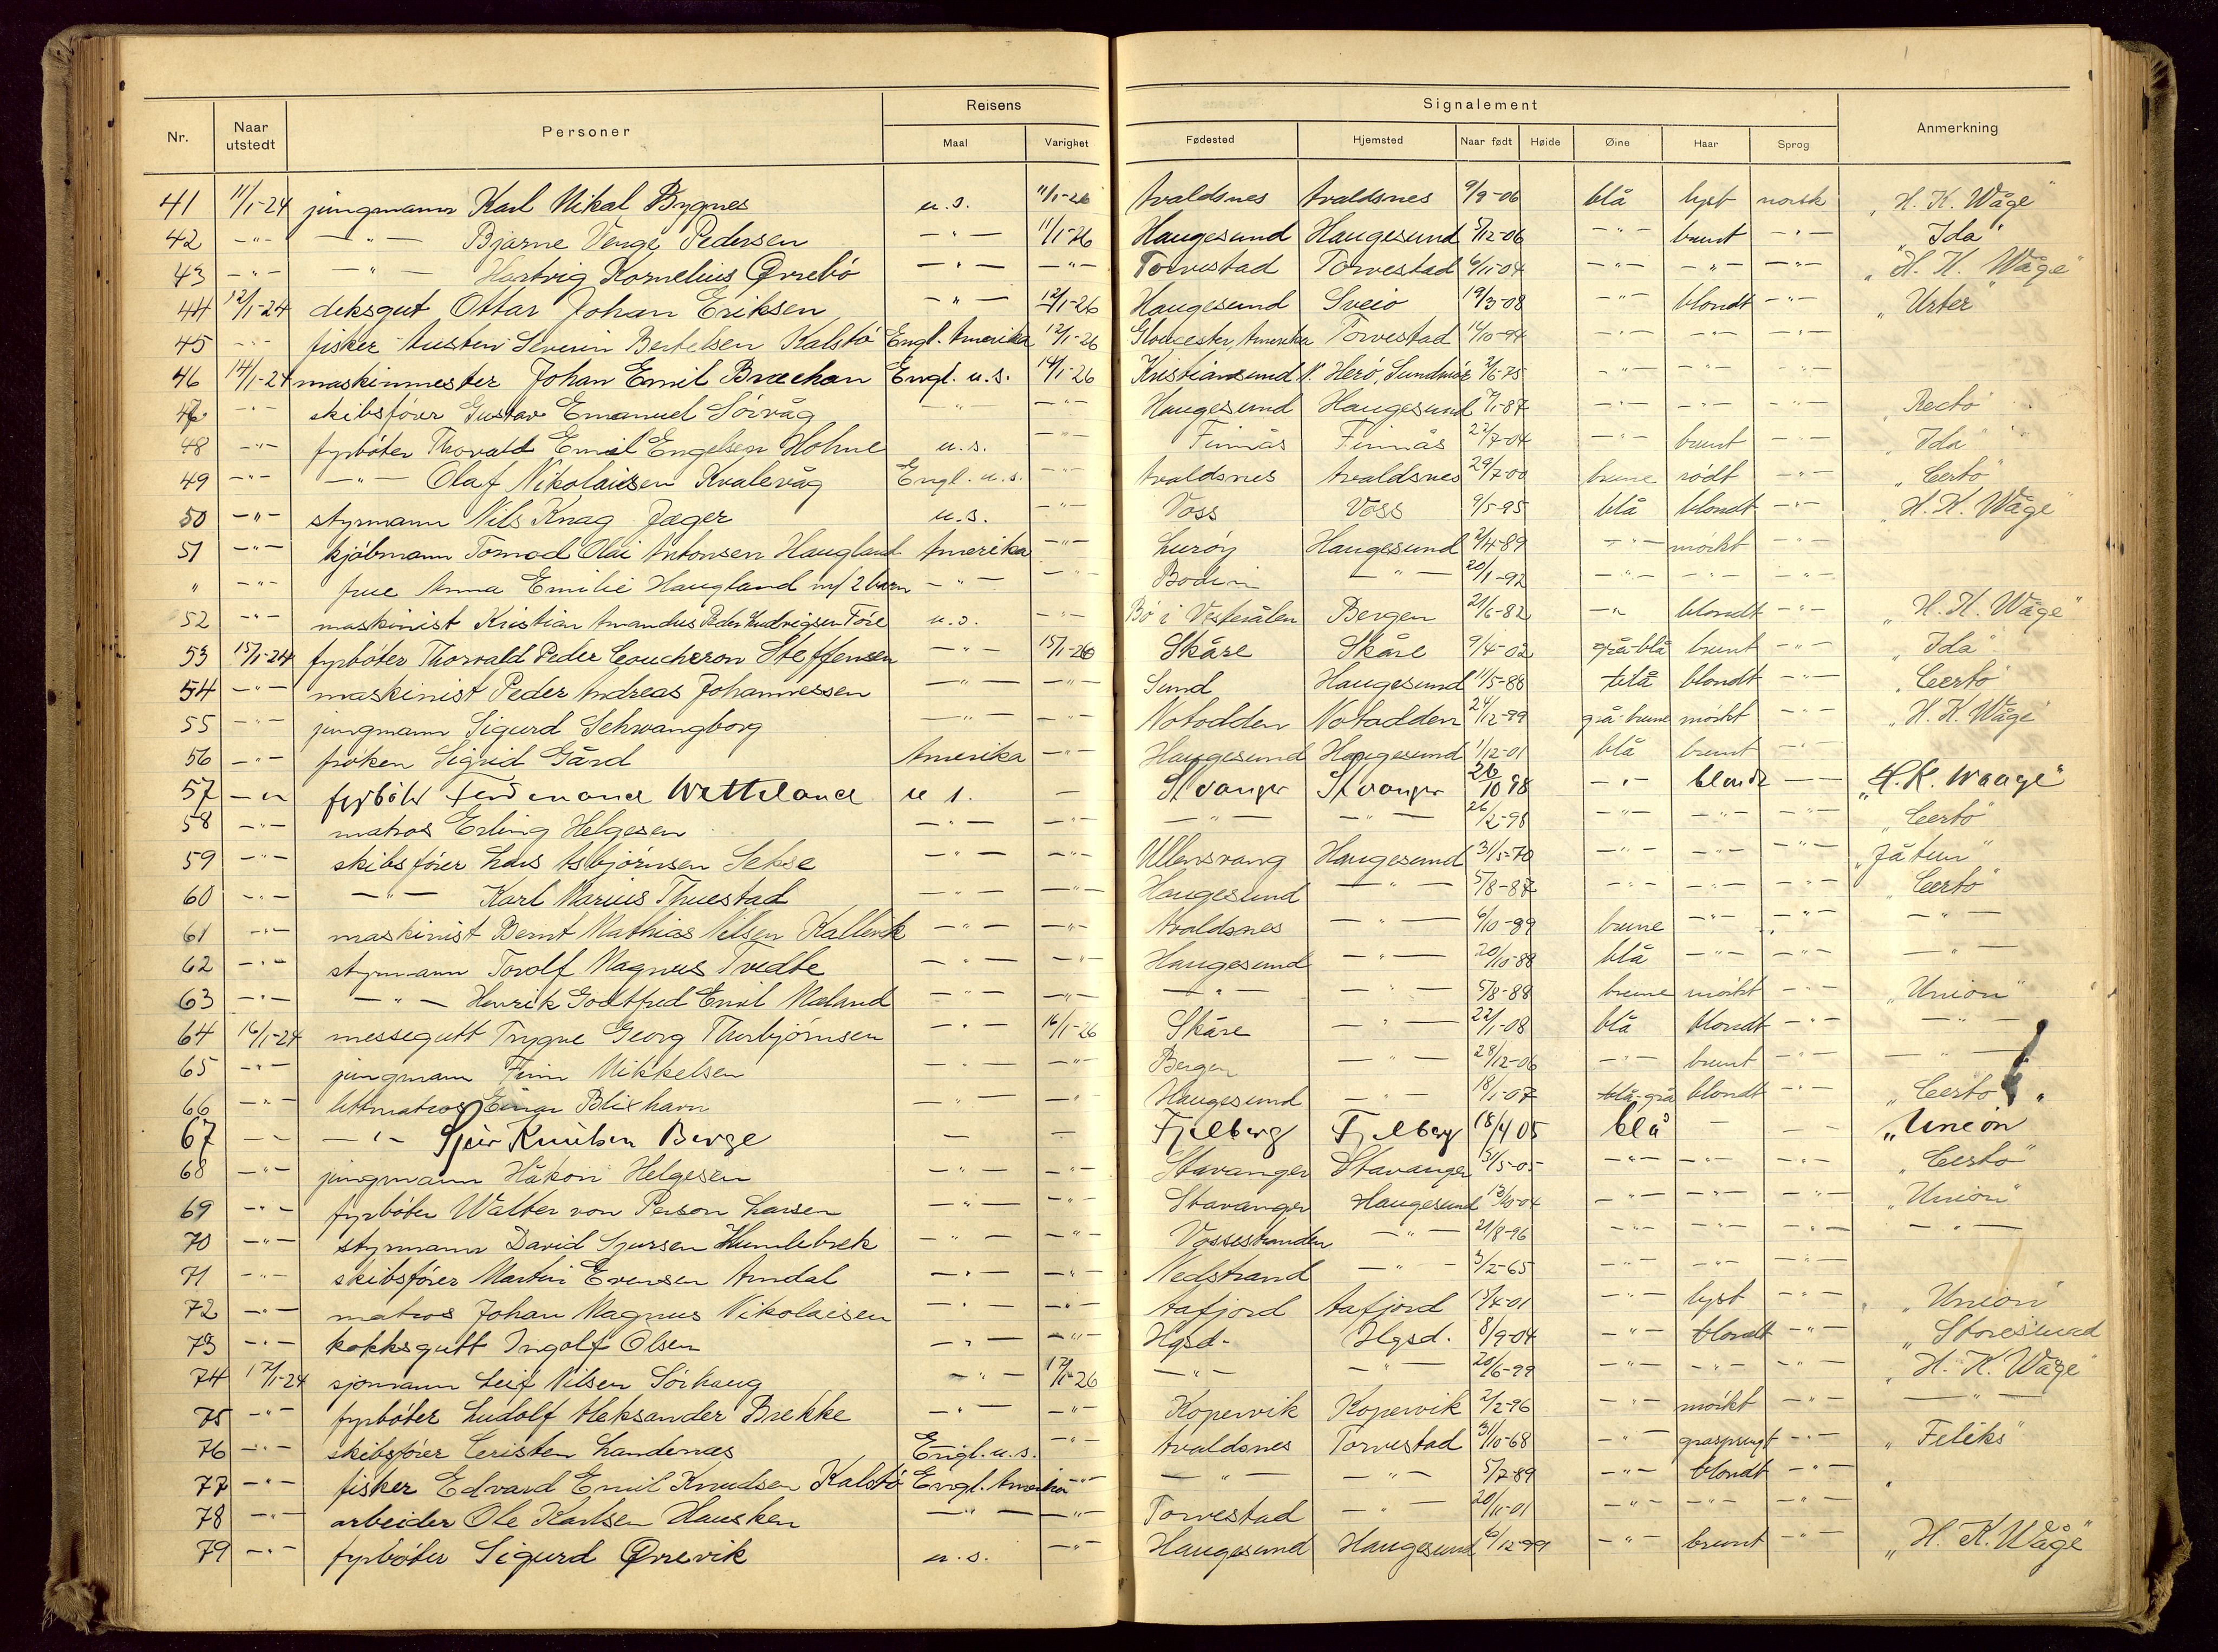 Reisens Signalement
Nr. Naar utstedt Personer Maal Varighet Fødested Hjemsted Naar født Høide Øine Haar Sprog Anmerkning
41 11/1-24 jungmann Karl Mikal Bygnes u.s. 11/1-26 Avaldsnes Avaldsnes 9/9-06 blå lyst norsk „H. K. Wåge"
42 -"- -"- Bjarne Venge Pedersen -"- 11/1-26 Haugesund Haugesund 5/12-06 -"- brunt -"- „Ida"
43 -"- -"- Hartvig Kornelius Ørrebø -"- -"- Torvestad Torvestad 6/11-04 -"- -"- -"- „H. K. Wåge"
44 12/1-24 deksgut Ottar Johan Eriksen -"- 12/1-26 Haugesund Sveio 19/3-08 -"- blondt -"- „Urter"
45 -"- fisker Austen Severin Bertelsen Kalstø Engl. Amerika 12/1-26 Gloucester, Amerika Torvestad 14/10-94 -"- -"- -"-
46 14/1-24 maskinmester Johan Emil Brækan Engl. u.s. 14/1-26 Kristiansund N. Herø, Sundmør 2/6-75 -"- -"- -"-
47 -"- skibsfører Gustav Emanuel Sörvåg -"- -"- Haugesund Haugesund 7/1-87 -"- -"- -"- „Recto"
48 -"- fyrbøter Thorvald Emil Engelsen Holme u.s. -"- Finnås Finnås 22/7-04 -"- brunt -"- „Ida"
49 -"- -"- Olaf Nikolaisen Kvalevåg Engl. u.s. -"- Avaldsnes Avaldsnes 29/7-00 brune rödt -"- „Certo"
50 -"- styrmann Nils Knag Jæger u.s. -"- Voss Voss 9/5-95 blå blondt -"- „H. K. Wåge"
51 -"- kjöbmann Tormod Olai Antonsen Haugland Amerika -"- Luröy Haugesund 2/4-89 -"- mörkt -"-
" -"- frue Anna Emilie Haugland m/ 2 barn -"- -"- Bodin -"- 20/1-92 -"- -"- -"-
52 -"- maskinist Kristian Amandus Peder Ludvigsen Före u.s. -"- Bö i Vesterålen Bergen 21/6-82 -"- blondt -"- „H. K. Wåge"
53 15/1-24 fyrbøter Thorvald Peder Coucheron Steffensen -"- 15/1-26 Skåre Skåre 9/4-02 grå-blå brunt -"- „Ida"
54 -"- maskinist Peder Andreas Johannessen -"- -"- Sund Haugesund 14/5-88 blå blondt -"- „Certo"
55 -"- jungmann Sigurd Schwangborg -"- -"- Notodden Notodden 24/12-99 grå-brune mörkt -"- „H. K. Wåge"
56 -"- fröken Sigrid Gård Amerika -"- Haugesund Haugesund 1/12-01 blå brunt -"-
57 -"- fyrbøter Ferdinand Wetteland u s. - Stvanger Stvanger 26/10 98 -"- blondt -- „H. K. Waage"
58 -"- matros Erling Helgesen -"- -"- -"- -"- 26/2-98 -"- -"- -"- „Certo"
59 -"- skibsfører Lars Asbjörnsen Sekse -"- -"- Ullensvang Haugesund 31/5-70 -"- -"- -"- „Jåtun"
60 -"- -"- Karl Marius Thuestad -"- -"- Haugesund -"- 5/8-87 -"- -"- -"- „Certo"
61 -"- maskinist Bernt Mathias Nilsen Kallevik -"- -"- Avaldsnes -"- 6/10-99 brune -"- -"- -"-
62 -"- styrmann Torolf Magnus Tvedte -"- -"- Haugesund -"- 20/10-88 blå -"- -"- -"-
63 -"- -"- Henrik Godtfred Emil Næland -"- -"- -"- -"- 5/8-88 brune mörkt -"- „Union"
64 16/1-24 messegutt Trygve Georg Thorbjörnsen -"- 16/1-26 Skåre -"- 22/1-08 blå blondt -"- -"-
65 -"- jungmann Finn Mikkelsen -"- -"- Bergen -"- 28/12-06 -"- brunt -"- -"-
66 -"- lettmatros Einar Blixhavn -"- -"- Haugesund -"- 18/1-07 blå-grå blondt -"- „Certo"
67 -- -"- Sjur Knutsen Berge - - Fjelberg Fjelberg 18/4 05 blå - - „Union
68 -"- jungmann Håkon Helgesen -"- -"- Stavanger Stavanger 31/5-05 -"- -"- -"- „Certo"
69 -"- fyrbøter Walter von Person Larsen -"- -"- Stavanger Haugesund 13/10-04 -"- -"- -"- „Union"
70 -"- styrmann David Sjursen Humlebrek -"- -"- Vossestranden -"- 21/8-96 -"- -"- -"- -"-
71 -"- skibsfører Martin Evensen Amdal -"- -"- Nedstrand -"- 3/2-65 -"- -"- -"-
72 -"- matros Johan Magnus Nikolaisen -"- -"- Aafjord Aafjord 13/4-01 -"- lyst -"- „Union"
73 -"- kokksgutt Ingolf Olsen -"- -"- Hgsd. Hgsd. 8/9-04 -"- blondt -"- „Storesund
74 17/1-24 sjömann Leif Nilsen Sörhaug -"- 17/1-26 -"- -"- 20/6-99 -"- -"- -"- „H. K. Wåge"
75 -"- fyrbøter Ludolf Aleksander Brekke -"- -"- Kopervik Kopervik 2/2-96 -"- mörkt -"- -"-
76 -"- skibsfører Cristen Landenæs Engl. u.s. -"- Avaldsnes Torvestad 3/10-68 -"- graasprengt -"- „Feliks"
77 -"- fisker Edvard Emil Knudsen Kalstø Engl. Amerika -"- -"- -"- 5/7-89 -"- blondt -"-
78 -"- arbeider Ole Karlsen Hausken -"- -"- Torvestad -"- 20/11-01 -"- -"- -"-
79 -"- fyrbøter Sigurd Ørrevik u.s. -"- Haugesund Haugesund 6/12-99 -"- brunt -"- „H. K. Wåge"